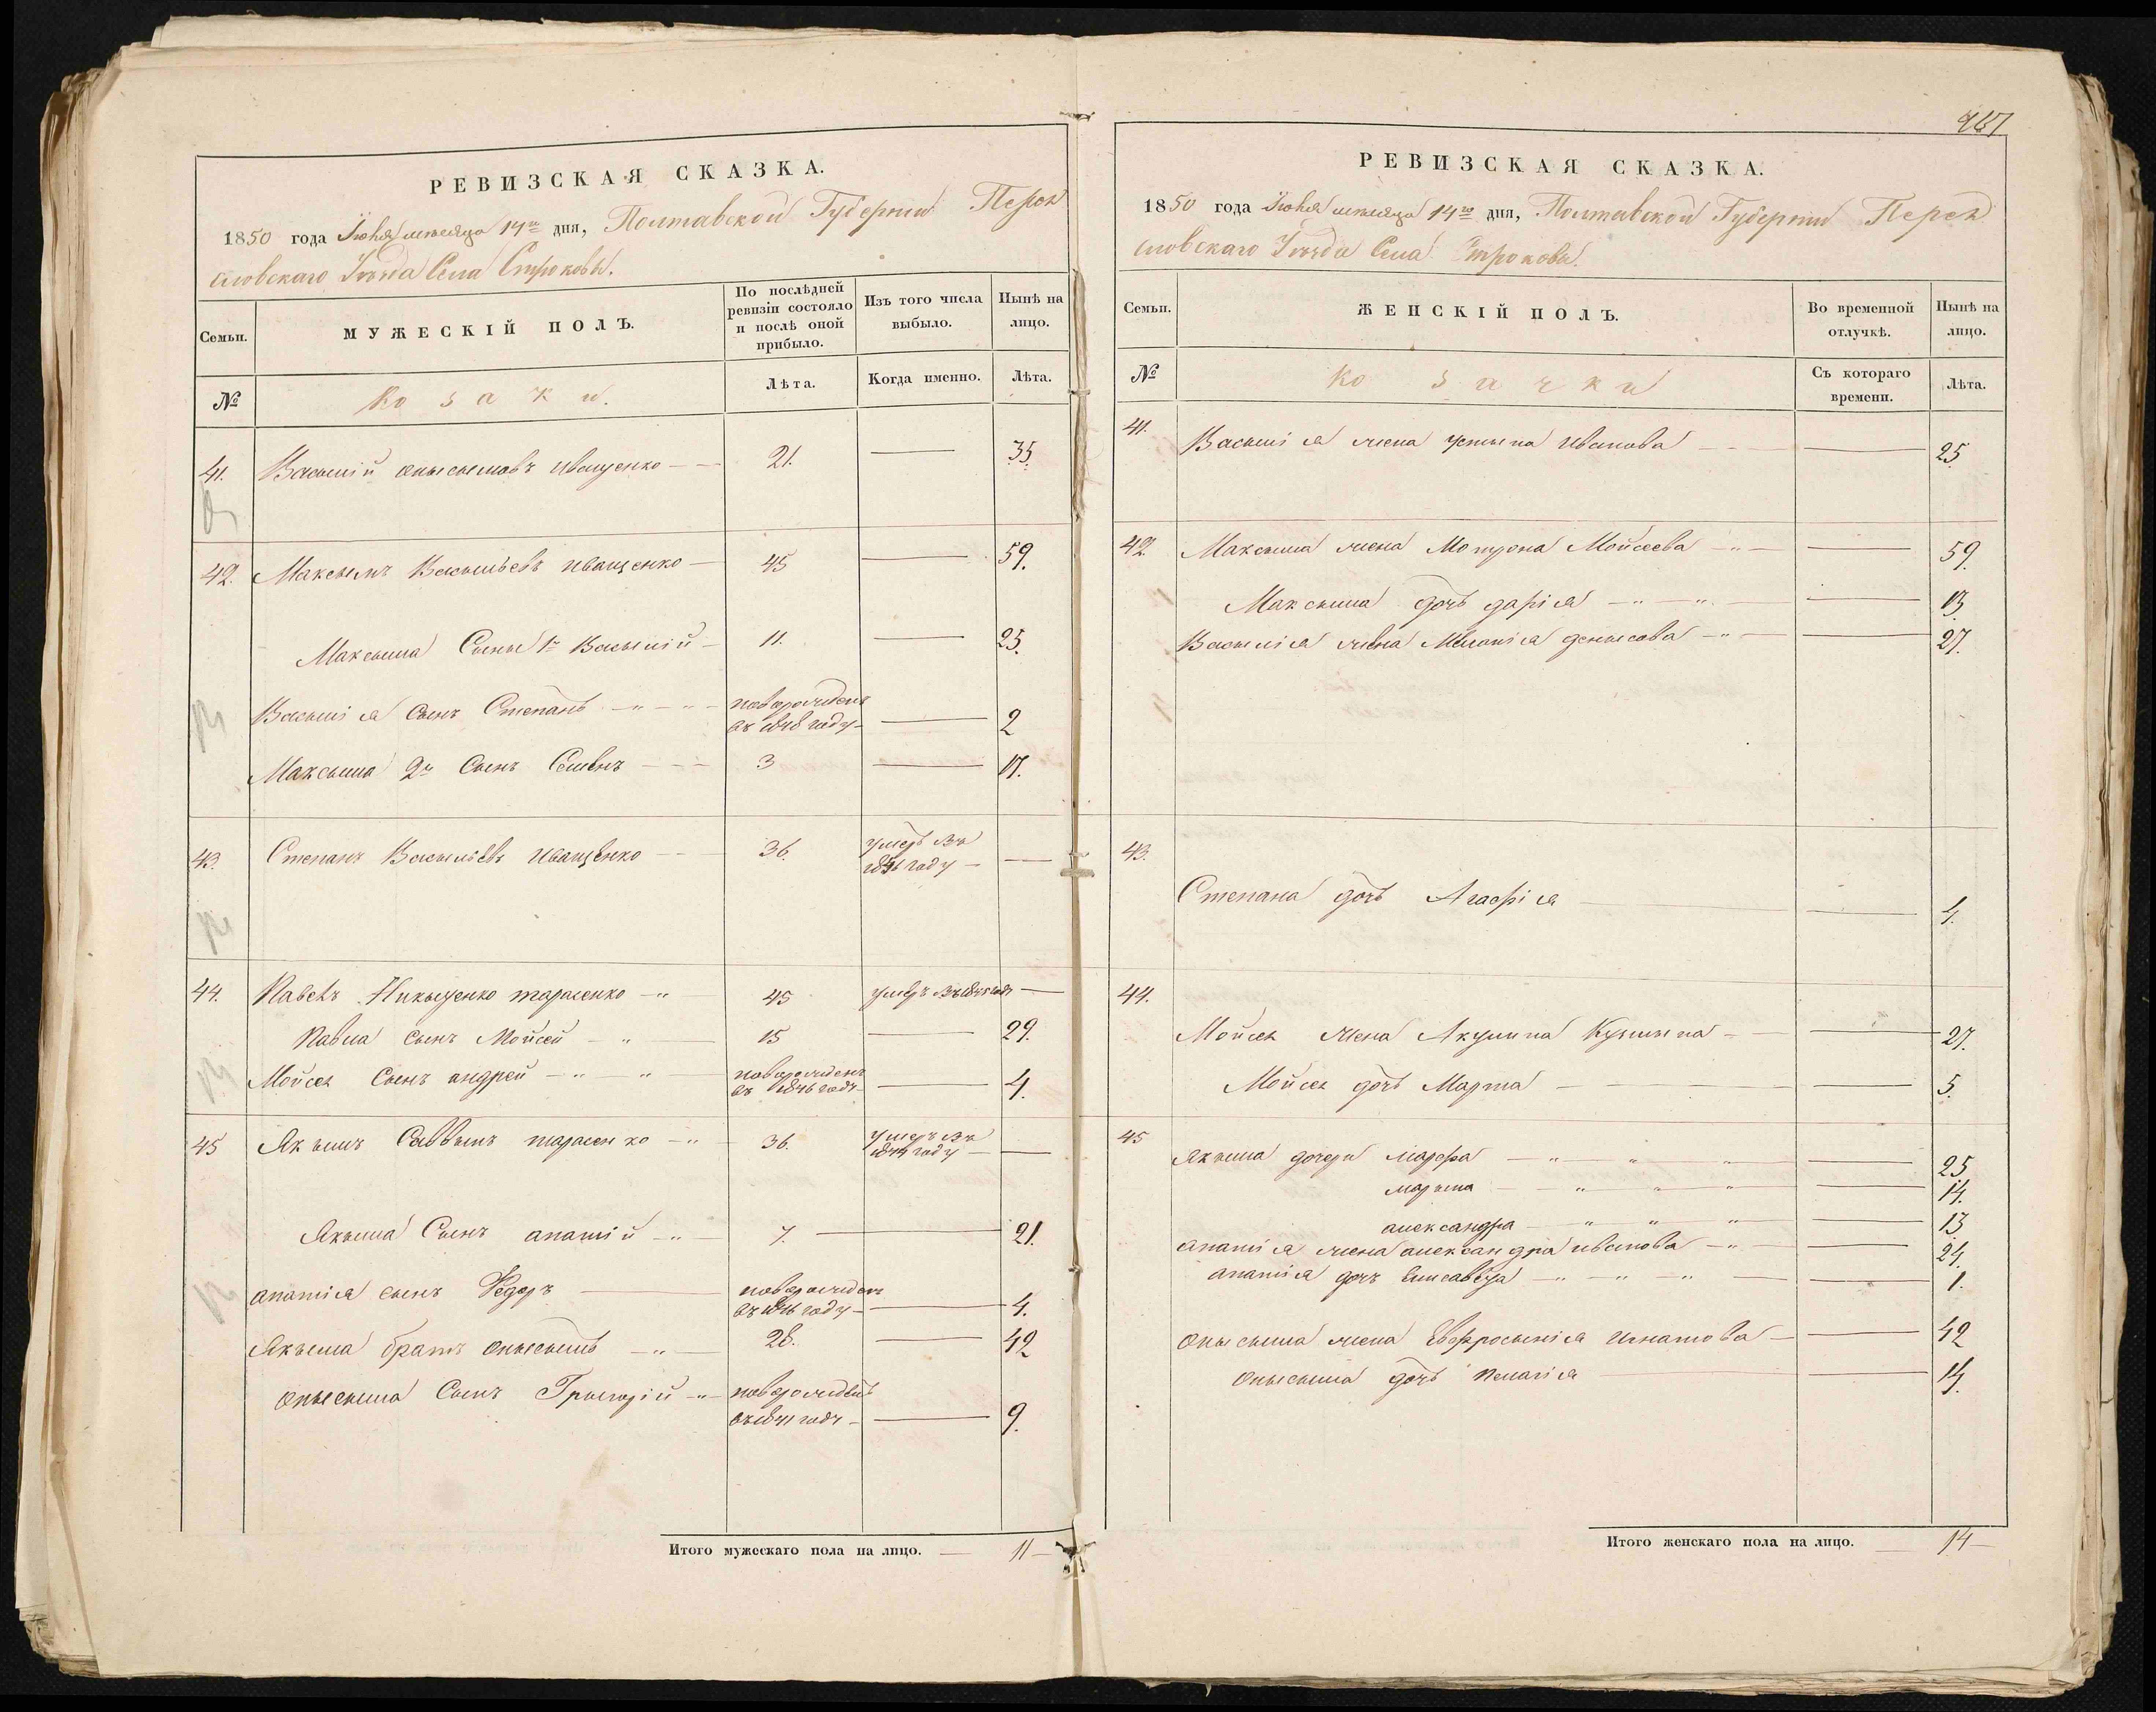 РЕВИЗСКАЯ СКАЗКА.
1850 года Іюня месяца 14го дня, Полтавской Губерніи Перея
словскаго Уѣзда Села Строковы.
Семьи.
МУЖЕСКІЙ ПОЛЪ.
По послѣдней ревизіи состояло и послѣ оной прибыло.
Изъ того числа выбыло.
Нынѣ на лицо.
№
Козаки.
Лѣта.
Когда именно.
Лѣта.
41. Василій Онысымовъ Иващенко 21. 35.
42. Максымъ Васильевъ Иващенко 45 59.
Максыма Сыны 1й Василій 11. 25.
Василія Сынъ Степанъ новорожденъ въ 1848 году 2
Максыма 2й Сынъ Семенъ 3 17.
43. Степанъ Васильевъ Иващенко 36. умеръ въ 1846 году
44. Павелъ Никыценко тарасенко 45 умеръ въ году
Павла сынъ Мойсей 15 29.
Мойсея Сынъ андрей новорожденъ въ 1846 году 4.
45 Якымъ Саввынъ тарасенко 36. умеръ въ 1844 году
Якыма Сынъ апатій 7. 21.
апатія сынъ Федоръ новорожденъ въ 1846 году 4.
Якыма братъ Онысымъ 28. 42
Онысыма Сынъ Грыгорій новорожденъ въ 1841 году 9.
Итого мужескаго пола на лицо. 11
РЕВИЗСКАЯ СКАЗКА.
1850 года Іюня месяца 14го дня, Полтавской Губерніи Перея
словскаго Уѣзда Села Строковы.
Семьи.
ЖЕНСКІЙ ПОЛЪ.
Во временной отлучкѣ.
Нынѣ на лицо.
№
Козачки
Съ котораго времени.
Лѣта.
41. Василія жена Устына Иванова 25
42. Максыма жена Мотрона Мойсеева 59.
Максыма дочь дарія 13.
Василія жена Меланія денысова 27.
43.
Степана дочь Агафія 4.
44.
Мойсея жена Акулина Кузмына 27.
Мойсея дочь Марта 5.
45
Якыма дочери марфа 25.
марына 14.
александра 13
апатія жена александра иванова 24.
апатія дочь Елисавета 1.
Онысыма жена Евфросынія Игнатова 42
Онысыма дочь Пелагія 14.
Итого женскаго пола на лицо. 14